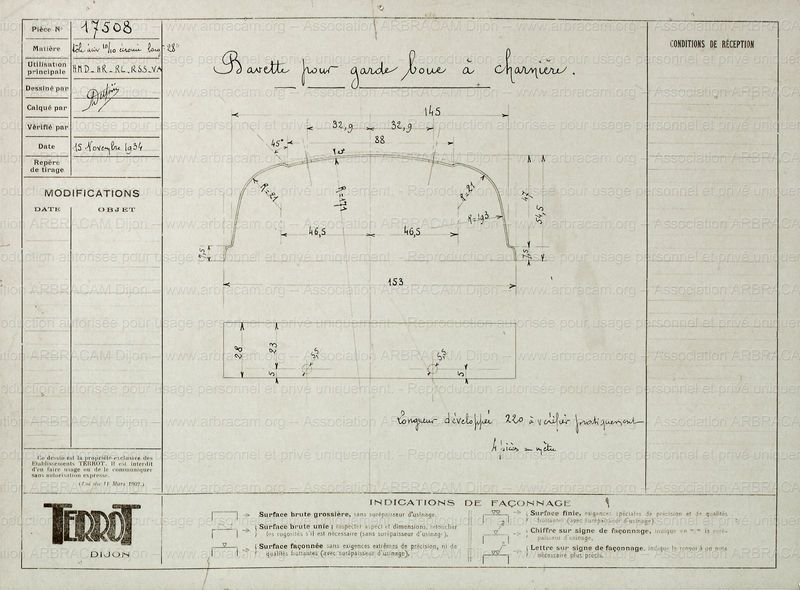 Pièce N° 17508
Matière tôle acier 10/10 écrouie larg 28
Utilisation principale HMD_HR_RL_RSS_VA
Dessiné par
Calqué par
Vérifié par
Date 15 Novembre 1934
Repère de tirage
MODIFICATIONS
DATE OBJET
Bavette pour garde boue à charnière.
CONDITIONS DE RÉCEPTION
145
32,9 32,9
88
45°
R=21
R=171
R=21
R=193
47
54,5
46,5 46,5
7,5
7,5
153
28
23
5
5
Longueur développée 220 à vérifier pratiquement
Ce dessin est la propriété exclusive des
Etablissements TERROT. Il est interdit
d'en faire usage ou de le communiquer
sans autorisation expresse.
(Loi du 11 Mars 1902.)
TERROT
DIJON
INDICATIONS DE FAÇONNAGE
Surface brute grossière, sans surépaisseur d'usinage.
Surface brute unie ; respecter aspect et dimensions, retoucher
les rugosités s'il est nécessaire (sans surépaisseur d'usinage).
Surface façonnée sans exigences extrêmes de précision, ni de
qualités frottantes (avec surépaisseur d'usinage).
Surface finie, exigences spéciales de précision et de qualités
frottantes (avec surépaisseur d'usinage).
Chiffre sur signe de façonnage, indique en m/m la surépaisseur d'usinage.
Lettre sur signe de façonnage, indique le renvoi à une note
nécessaire plus précis.
www.arbracam.org – Association ARBRACAM Dijon – Reproduction autorisée pour usage personnel et privé uniquement.